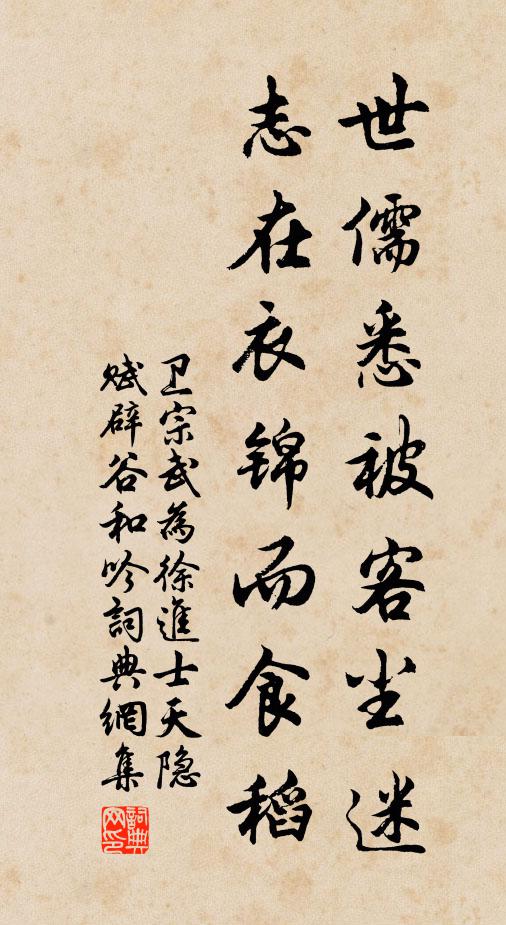 世儒悉被客尘迷
志在衣锦而食稻
卫宗武為徐進士天隐
赋辟谷和吟詞典網集
詞典
网印